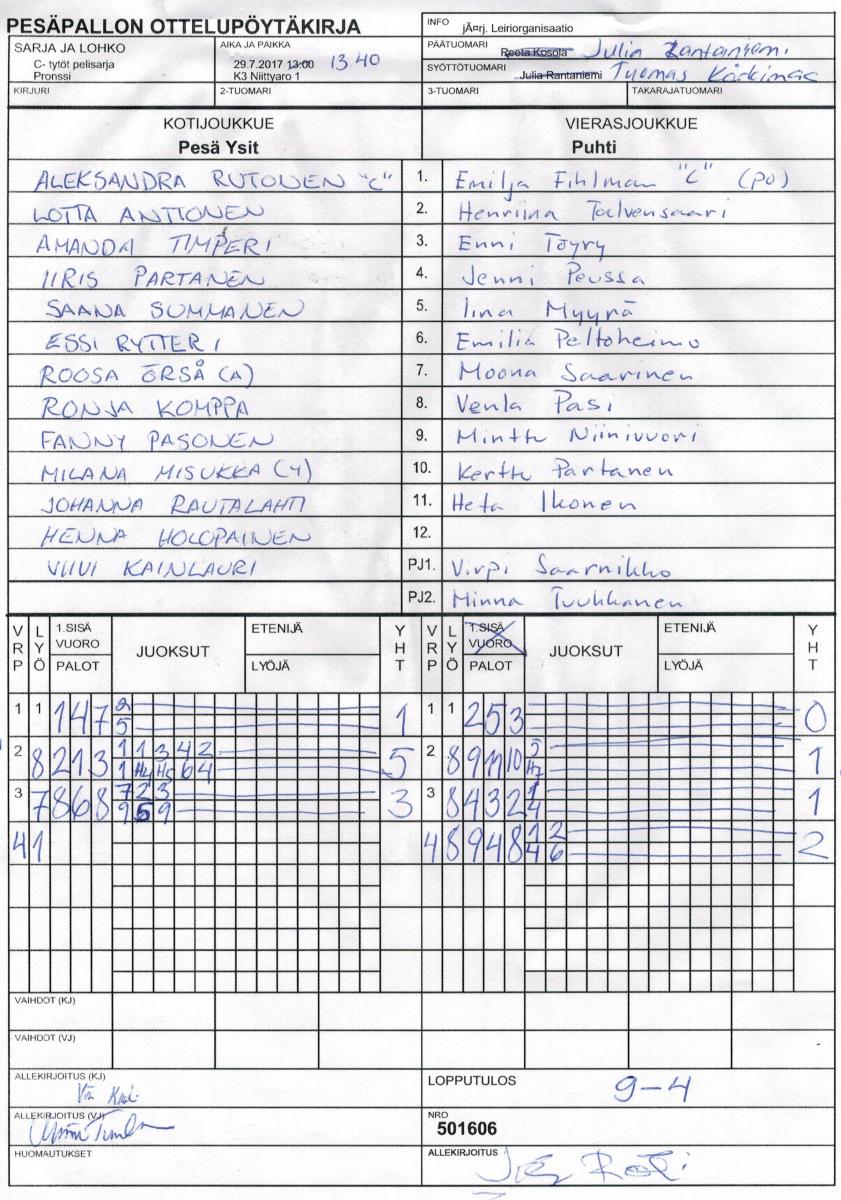 PESÄPALLON OTTELUPÖYTÄKIRJA
INFO jÃ¤rj. Leiriorganisaatio
SARJA JA LOHKO
C- tytöt pelisarja
Pronssi
AIKA JA PAIKKA
29.7.2017 13:00 13.40
K3 Niittyaro 1
PÄÄTUOMARI Reeta Kosola Julia Rantaniemi
SYÖTTÖTUOMARI Julia Rantaniemi Tuomas
KIRJURI 2-TUOMARI 3-TUOMARI TAKARAJATUOMARI
KOTIJOUKKUE VIERASJOUKKUE
Pesä Ysit Puhti
ALEKSANDRA RUTONEN "C" 1. Emilja Fihlman "C" (PO)
LOTTA ANTTONEN 2. Henriina Talvensaari
AMANDA TIMPERI 3. Enni Töyry
IIRIS PARTANEN 4. Jenni Peussa
SAANA SUMMANEN 5. Iina Myyrä
ESSI RYTTERI 6. Emilia Peltoheimo
ROOSA ÖRSÅ (A) 7. Moona Saarinen
RONJA KOMPPA 8. Venla Pasi
FANNY PASONEN 9. Minttu Niinivuori
MILANA MISUKKA (4) 10. Kerttu Partanen
JOHANNA RAUTALAHTI 11. Heta Ikonen
HENNA HOLOPAINEN 12.
VIIVI KAINLAURI PJ1. Virpi Saarnikko
PJ2. Minna Tuukkanen
VRP LYÖ 1.SISÄ VUORO PALOT JUOKSUT ETENIJÄ LYÖJÄ YHT VRP LYÖ 1.SISÄ VUORO PALOT JUOKSUT ETENIJÄ LYÖJÄ YHT
1 1 1 4 7 2 1 1 1 2 5 3 0
5
2 8 2 1 3 1 1 3 4 2 5 2 8 9 11 10 5 1
1 H4 H5 6 4 H7
3 7 8 6 8 7 2 3 3 3 8 4 3 2 1 1
9 5 9 4
4 1 4 8 9 4 8 1 2 2
4 6
VAIHDOT (KJ)
VAIHDOT (VJ)
ALLEKIRJOITUS (KJ) LOPPUTULOS 9-4
ALLEKIRJOITUS (VJ) NRO
501606
HUOMAUTUKSET ALLEKIRJOITUS